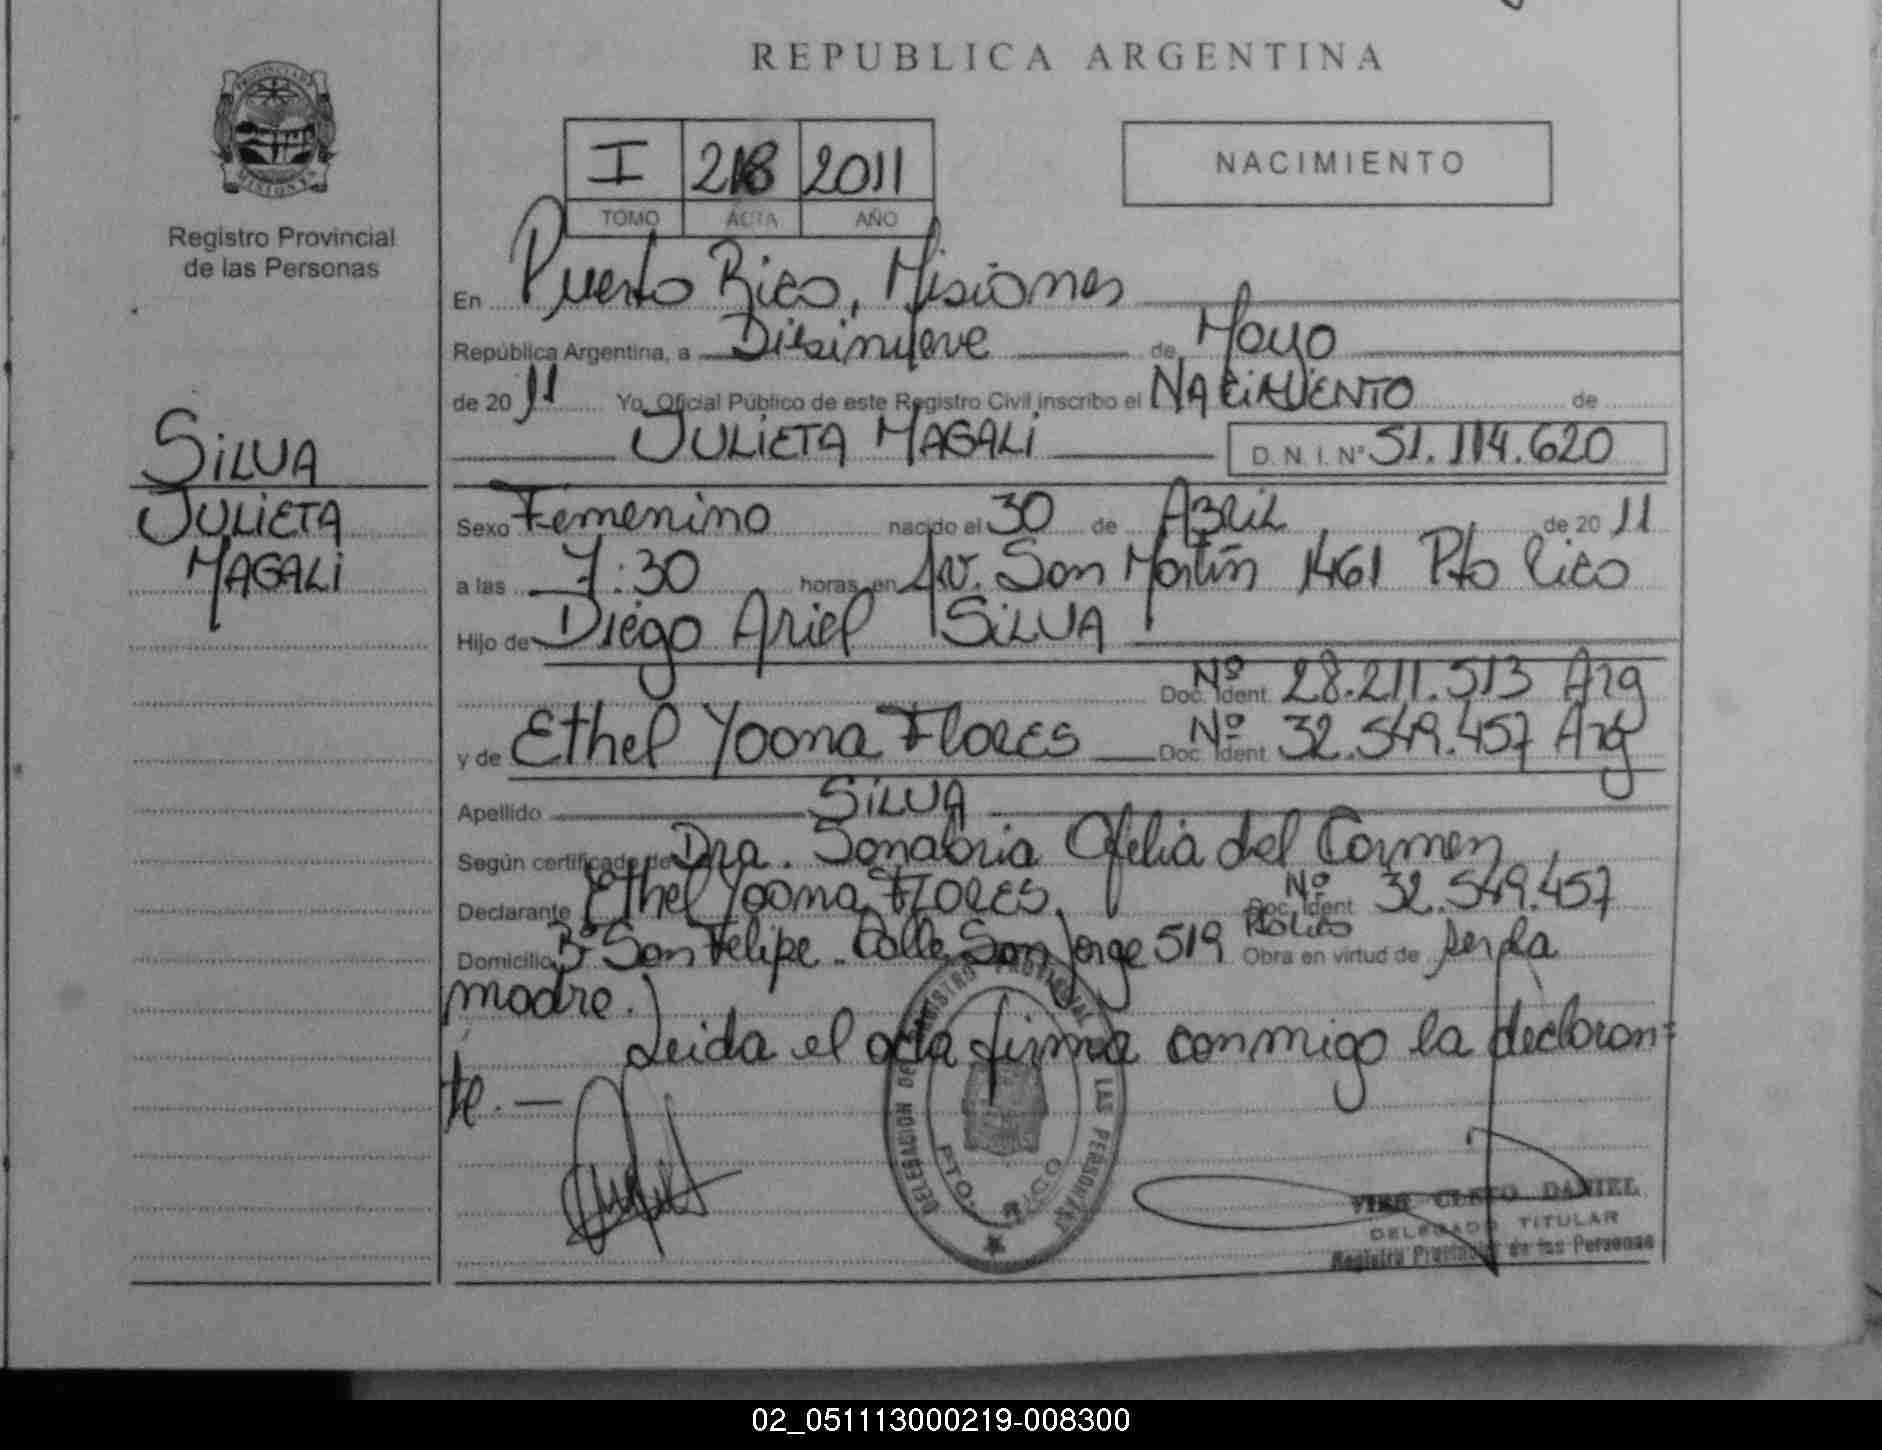 REPUBLICA ARGENTINA
PROVINCIA DE MISIONES
Registro Provincial
de las Personas
I 218 2011
TOMO ACTA AÑO
NACIMIENTO
SILVA
JULIETA
MAGALI
En Puerto Rico, Misiones
República Argentina, a Diesinueve de Mayo
de 20 11 Yo, Oficial Público de este Registro Civil inscribo el NACIMIENTO de
JULIETA MAGALI D.N.I. Nº 51.114.620
Sexo Femenino nacido el 30 de ABRIL de 20 11
a las 7:30 horas, en Av. San Martín 1461 Pto Rico
Hijo de Diego Ariel SILVA
Doc. Ident. Nº 28.211.513 Arg
y de Ethel Yoana FLORES Doc. Ident. Nº 32.549.457 Arg
Apellido SILVA
Según certificado de Dra. Sanabria Ofelia del Carmen
Declarante Ethel Yoana FLORES Doc. Ident. Nº 32.549.457
Domicilio Bº San Felipe - Calle San Jorge 519 Pto Rico Obra en virtud de ser la
madre.
Leida el acta firma conmigo la declaran=
te. —
DELEGACION DEL REGISTRO PROVINCIAL DE LAS PERSONAS
PTO. RICO
CLETO DANIEL
DELEGADO TITULAR
Registro Provincial de las Personas
02_051113000219-008300